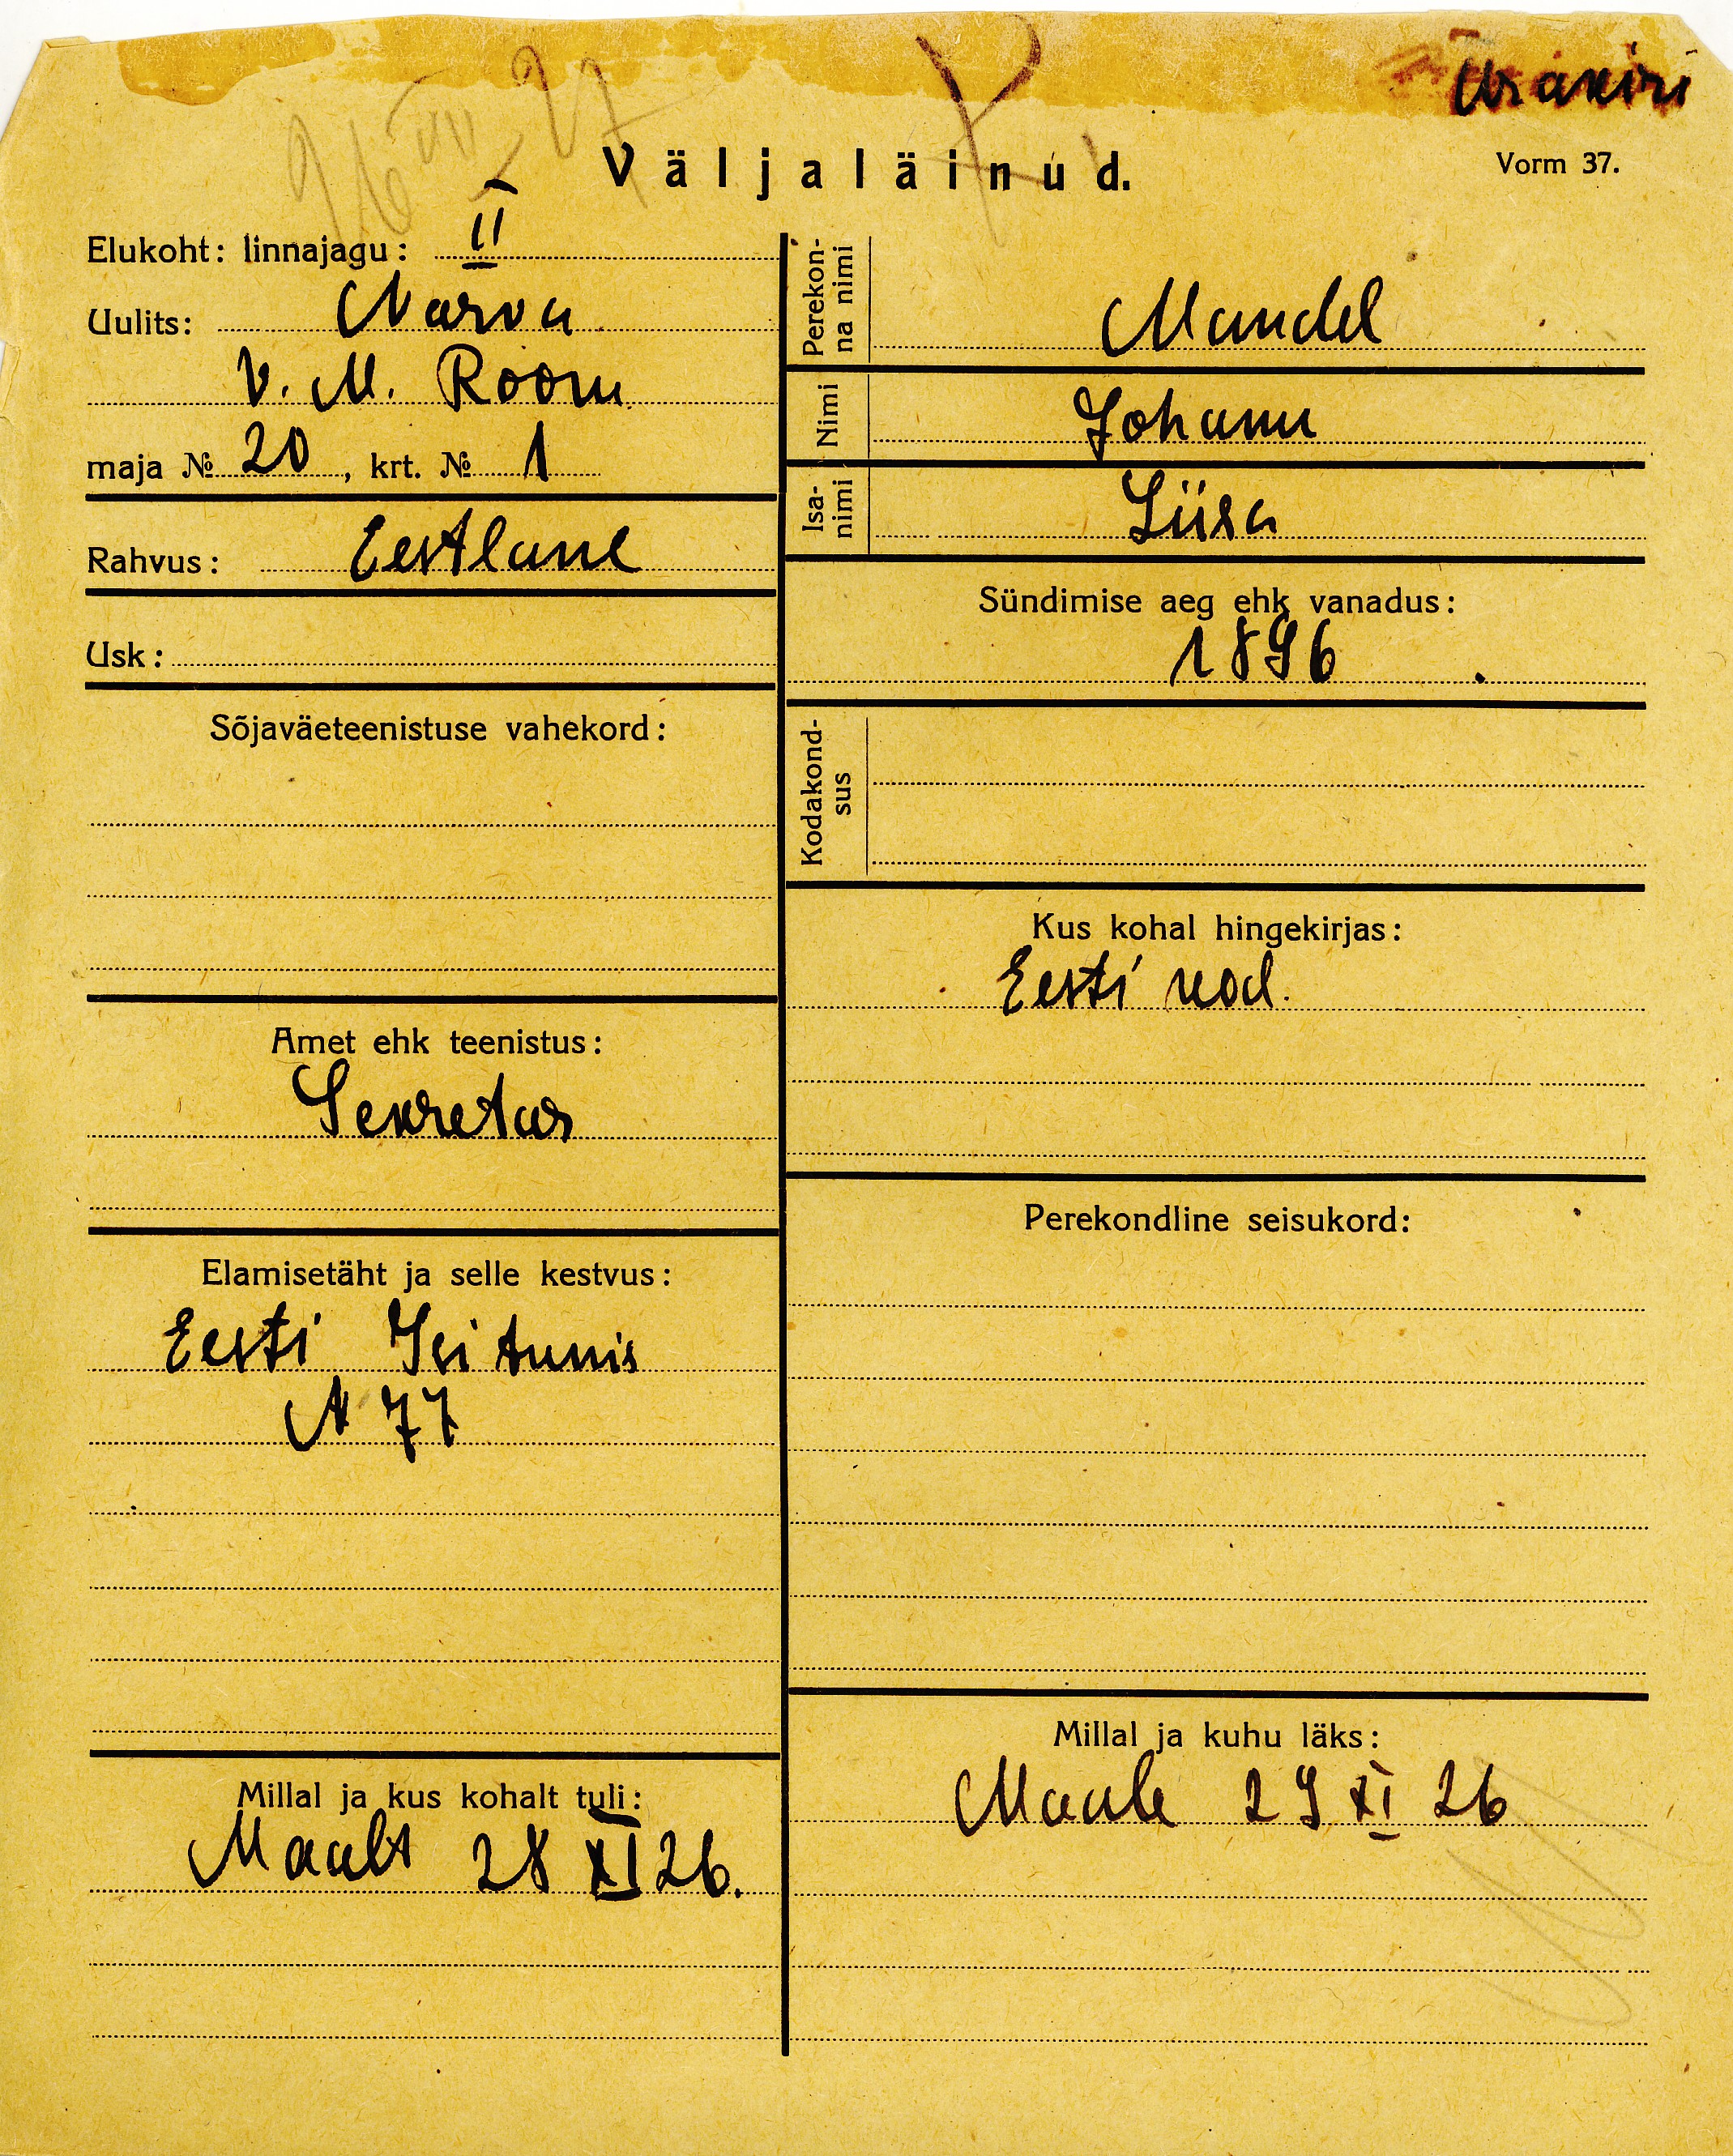 Ärakiri
26 VII 27
Väljaläinud.
Vorm 37.
Elukoht: linnajagu: II
Uulits: Narva
V. M. Room
maja № 20, krt. № 1
Rahvus: Eestlane
Usk:
Sõjaväeteenistuse vahekord:
Amet ehk teenistus:
Sekretar
Elamisetäht ja selle kestvus:
Eesti Isitunis
N 77
Millal ja kus kohalt tuli:
Maalt 28 XI 26.
Perekon-
na nimi
Mandel
Nimi Johann
Isa-
nimi
Liisa
Sündimise aeg ehk vanadus:
1896.
Kodakond-
sus
Kus kohal hingekirjas:
Eesti kod.
Perekondline seisukord:
Millal ja kuhu läks:
Maale 29 XI 26